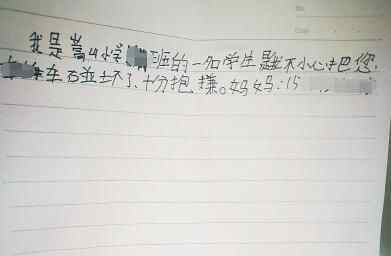 我是嵩山小学 班的一名学生 我不小心把您
车 碰坏了、十分抱歉。妈妈:15